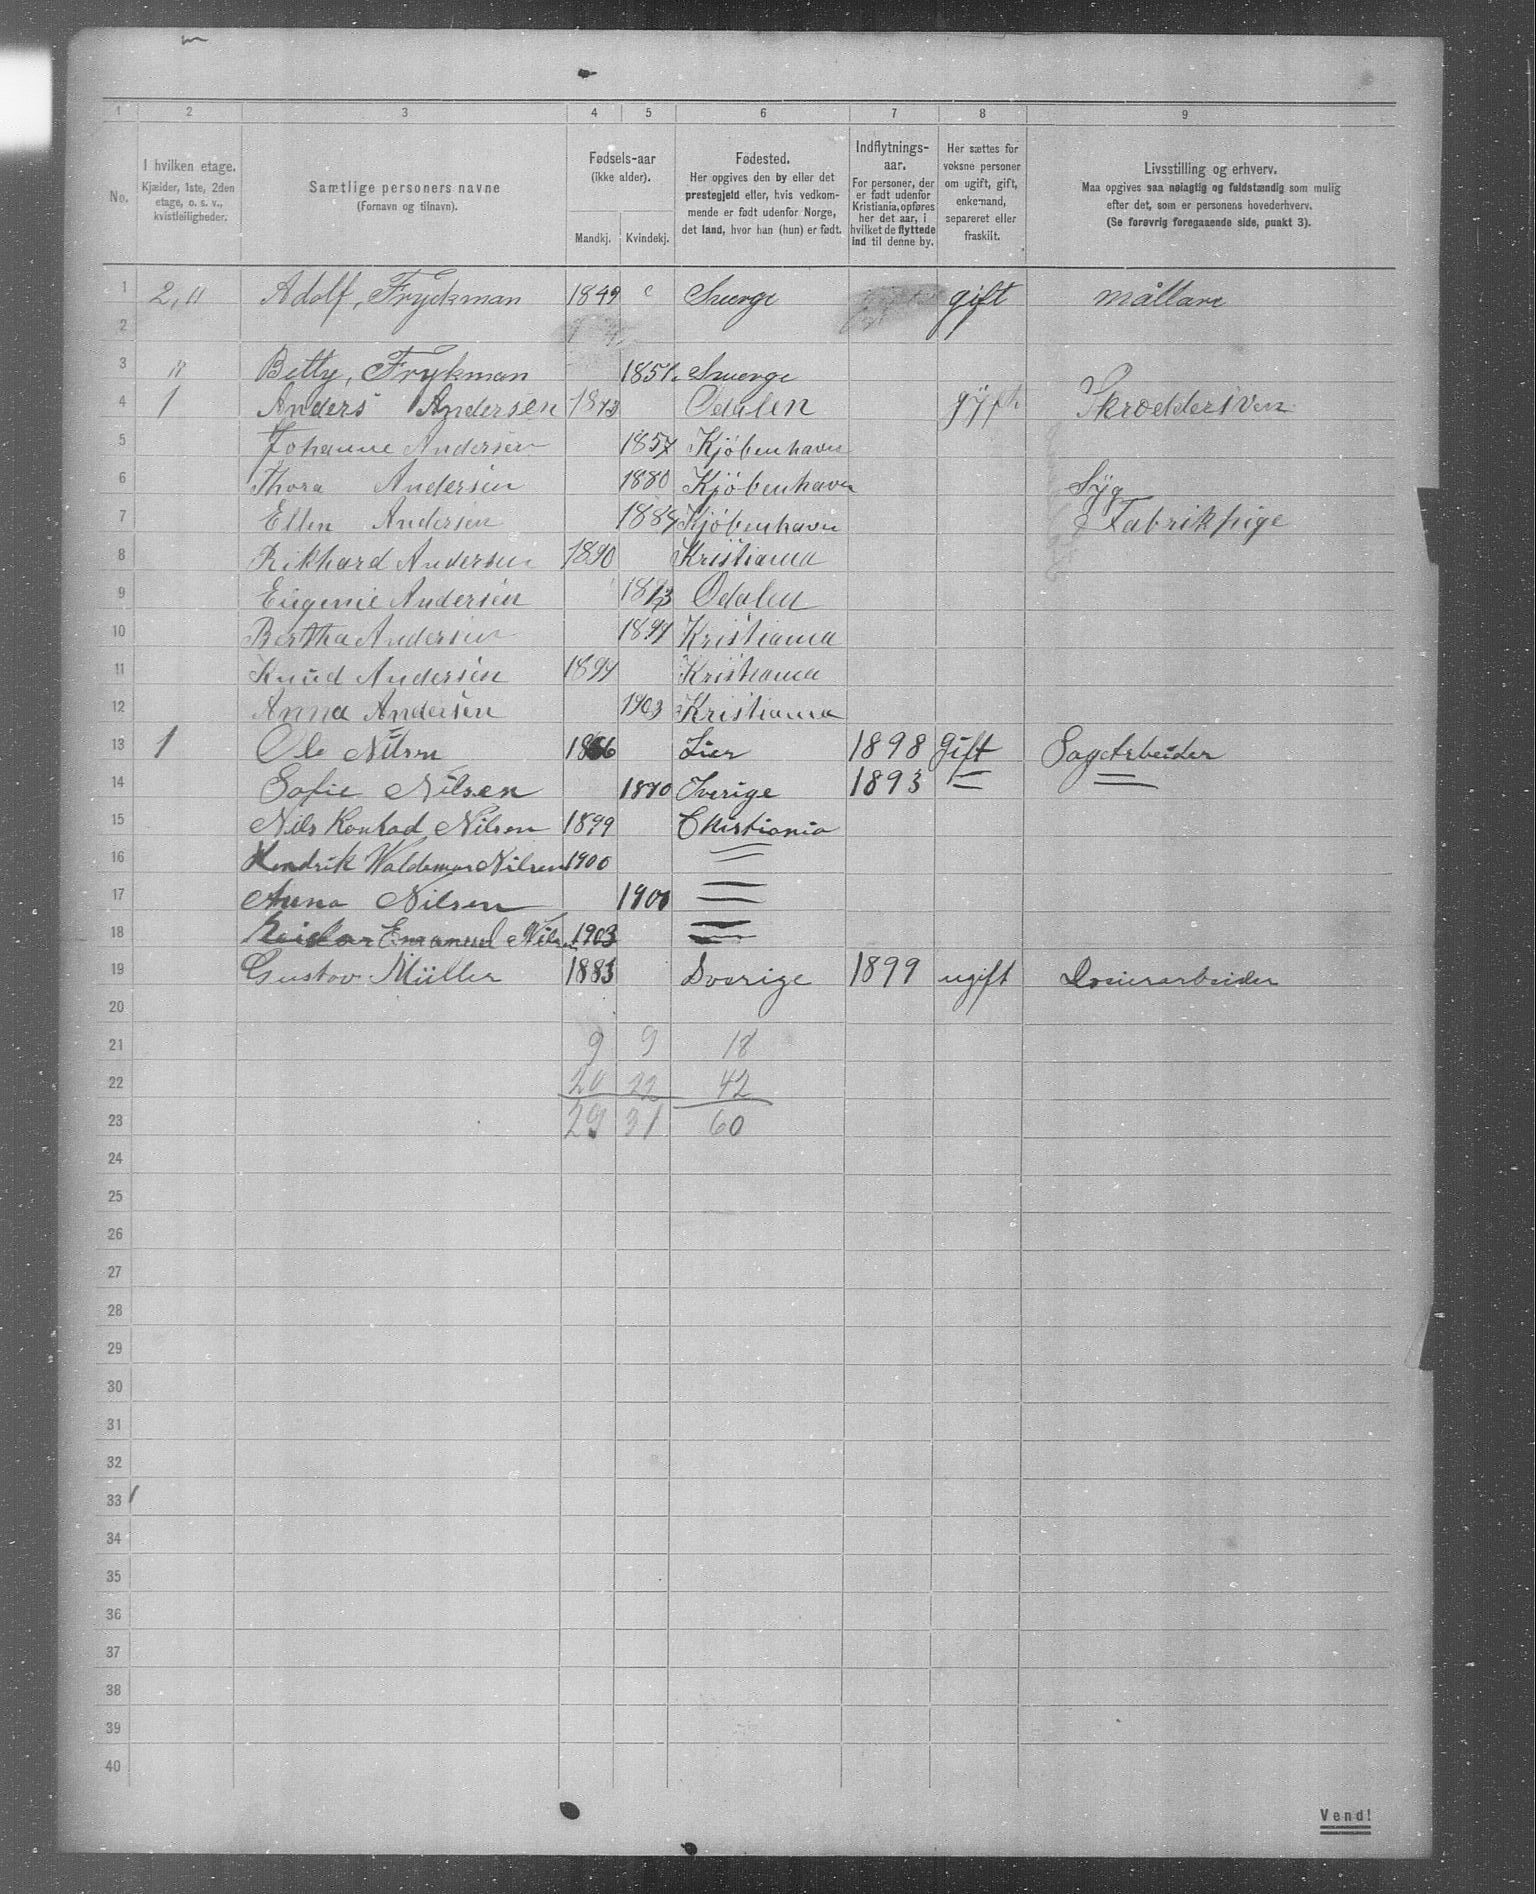 1 2 3 4 5 6 7 8 9
No. I hvilken etage. Kjælder, 1ste, 2den etage, o. s. v., kvistleiligheder. Samtlige personers navne (Fornavn og tilnavn). Fødsels-aar (ikke alder). Mandkj. Kvindekj. Fødested. Her opgives den by eller det prestegjeld eller, hvis vedkommende er født udenfor Norge, det land, hvor han (hun) er født. Indflytnings-aar. For personer, der er født udenfor Kristiania, opføres her det aar, i hvilket de flyttede ind til denne by. Her sættes for voksne personer om ugift, gift, enkemand, separeret eller fraskilt. Livsstilling og erhverv. Maa opgives saa nøiagtig og fuldstændig som mulig efter det, som er personens hovederhverv. (Se forøvrig foregaaende side, punkt 3).
1 2, Adolf, Fryckman 1849 Sverge gift mållare
2
3 " Betty, Frykman 1851. Sverge
4 1 Anders Andersen 1843 Odalen Skrœddersven
5 Johanne Andersen 1857 Kjøbenhavn
6 Thora Andersen 1880 Kjøbenhavn Syg
7 Ellen Andersen Kjøbenhavn Fabrikpige
8 Rikhard Andersen 1890 Kristiania
9 Eugenie Andersen Odalen
10 Bertha Andersen Kristiania
11 Knud Andersen Kristiania
12 Anna Andersen 1903 Kristiania
13 1 Ole Nilsen 1866 Lier 1898 Gift Sagarbeider
14 Sofie Nilsen 1870 Sverige 1893 = =
15 Nils Konrad Nilsen 1899 Christiania
16 Hendrik Waldemar Nilsen 1900 =
17 Anna Nilsen 1901 =
18 Reidar Emanuel Nilsen 1903 =
19 Gustav Müller 1883 Sverige 1899 ugift
20
21 9 9 18
22 20 22 42
23 29 31 60
24
25
26
27
28
29
30
31
32
33
34
35
36
37
38
39
40
Vend!